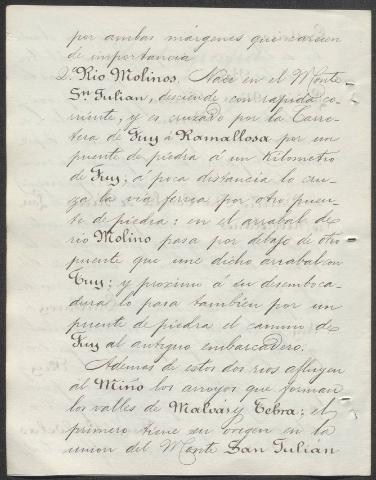 por ambas márgenes que carecen
de importancia
2.º Rio Molinos. Nace en el Monte
Sn. Julian, desciende con rapida co-
rriente, y es cruzado por la Carre-
tera de Tuy á Ramallosa por un
puente de piedra á un Kilometro
de Tuy; á poca distancia lo cru-
za la via ferrea por otro puen-
te de piedra: en el arrabal de
rio Molino pasa por debajo de otro
puente que une dicho arrabal con
Tuy; y proximo á su desemboca-
dura lo pasa tambien por un
puente de piedra el camino de
Tuy al antiguo embarcadero.
Además de estos dos rios afluyen
al Miño los arroyos que forman
los valles de Malvás y Tebra; el
primero tiene su origen en la
union del Monte San Julián